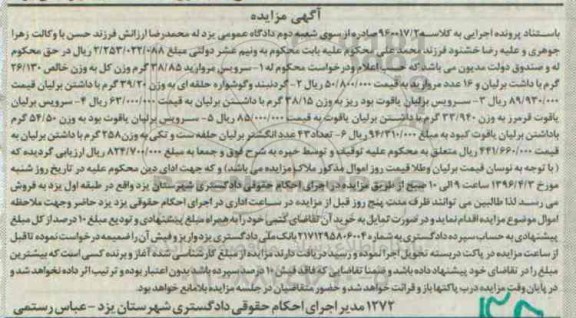 آگهی مزایده
باستناد پرونده اجرایی به کلاسه ۹۶۰۰۱۷/۲ صادره از سوی شعبه دوم دادگاه عمومی یزد له محمدرضا ارزانش فرزند حسن با وکالت زهرا
جوهری و علیه رضا خشنود فرزند محمد علی محکوم علیه بابت محکوم به ونیم عشر دولتی مبلغ ۲/۲۵۳/۰۲۲/۰۸۸ ریال در حق محکوم
له و صندوق دولت مدیون می باشد که حسب اعلام ودرخواست محکوم له ۱- سرویس مروارید ۳۸/۸۵ گرم وزن کل به وزن خالص ۲۶/۱۳۰
گرم با داشت برلیان و ۱۶ عدد مروارید به قیمت ۵۰/۸۰۰/۰۰۰ ریال ۲- گردنبند وگوشواره حلقه ای به وزن ۳۹/۲۰ گرم با داشتن برلیان قیمت
۸۹/۹۳۰/۰۰۰ ریال ۳- سرویس برلیان یاقوت بود ریز به وزن ۳۸/۱۵ گرم با داشتن برلیان به قیمت ۶۳/۰۰۰/۰۰۰ ریال ۴- سرویس برلیان
یاقوت قرمز به وزن ۳۳/۹۴۰ گرم با داشتن برلیان یاقوت به قیمت ۸۵/۰۰۰/۰۰۰ ریال ۵- سرویس برلیان یاقوت بود به وزن ۵۴/۵۰ گرم
باداشتن برلیان یاقوت کبود به مبلغ ۹۴/۳۱۰/۰۰۰ ریال ۶- تعداد ۴۳ عدد انگشتر برلیان حلقه ست و تکی به وزن ۲۵۸ گرم با داشتن برلیان به
قیمت ۴۴۱/۶۶۰/۰۰۰ ریال متعلق به محکوم علیه توقیف و توسط خبره به شرح فوق و جمعا به مبلغ ۸۲۴/۷۰۰/۰۰۰ ریال ارزیابی گردیده که
( با توجه به نوسان قیمت برلیان وطلا قیمت روز اموال مذکور ملاک مزایده می باشد) و که جهت ادای دین محکوم علیه در تاریخ روز شنبه
مورخ ۱۳۹۶/۴/۳ ساعت ۹ الی ۱۰ صبح از طریق مزایده در اجرای احکام حقوقی دادگستری شهرستان یزد واقع در طبقه اول یزد به فروش
می رسد لذا طالبین می توانند ظرف مدت پنج روز قبل از مزایده در ساعت اداری در اجرای احکام حقوقی یزد حاضر وجهت ملاحظه
اموال موضوع مزایده اقدام نماید و در صورت تمایل به خرید آن تقاضای کتبی خود را به همراه مبلغ پیشنهادی و تودیع مبلغ ۱۰ درصد از کل مبلغ
پیشنهادی به حساب سپرده دادگستری به شماره ۲۱۷۱۲۹۵۸۰۶۰۰۴ بانک ملی دادگستری یزد واریز و فیش آن را ضمیمه درخواست نموده تا قبل
از ساعت مزایده در پاکت دربسته تحویل اجرا نموده و رسید دریافت دارند مزایده از مبلغ کارشناسی شده آغاز و برنده کسی است که بیشترین
مبلغ را در تقاضای خود پیشنهاد داده باشد و ضمنا تقاضایی که فاقد فیش ۱۰ درصد سپرده باشد بدون اعتبار بوده و ترتیب اثر داده نخواهد شد و
در پایان وقت مزایده درب پاکتها باز و قرائت خواهد شد و حضور متقاضیان در جلسه مزایده بلامانع خواهد بود.
۱۲۷۲ مدیر اجرای احکام حقوقی دادگستری شهرستان یزد - عباس رستمی